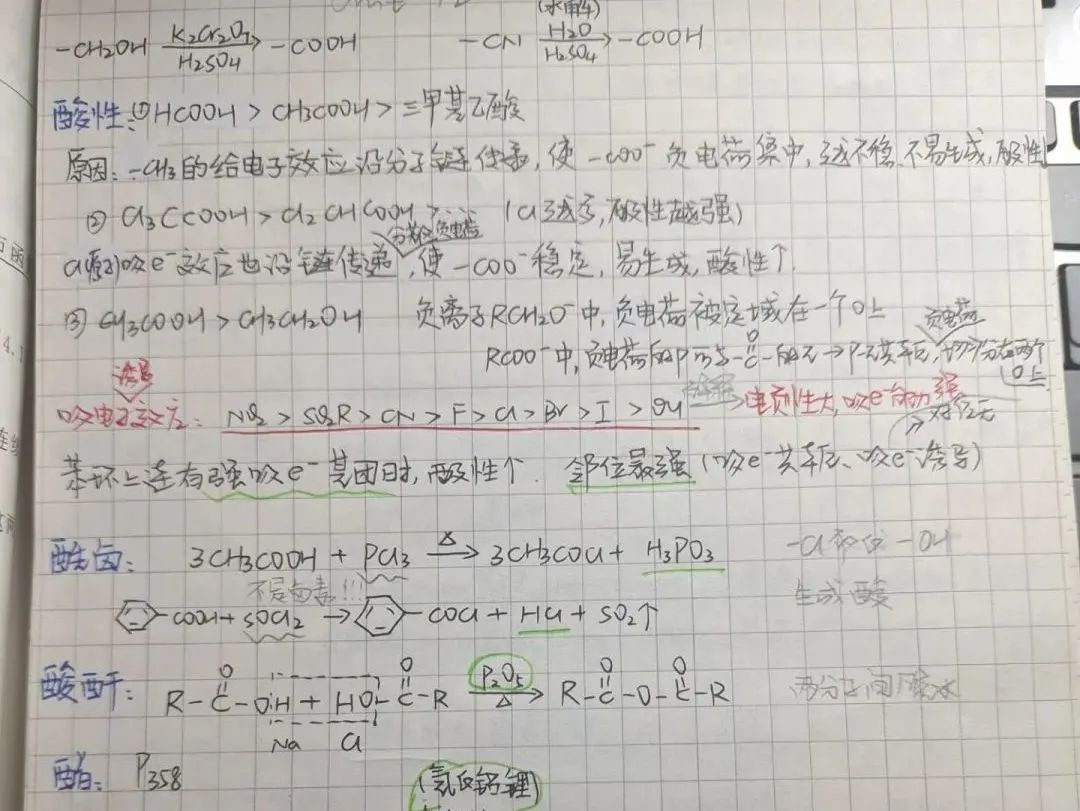 -CH2OH K2Cr2O7 H2SO4 → -COOH -CN (水解) H2O H2SO4 → -COOH
酸性: ① HCOOH > CH3COOH > 三甲基乙酸
原因: -CH3的给电子效应沿分子链传递, 使 -COO⁻ 负电荷集中, 越不稳, 不易生成, 酸性
② Cl3CCOOH > Cl2CHCOOH > (Cl越多, 酸性越强)
分散负电荷
Cl原子吸e⁻效应也沿链传递, 使 -COO⁻稳定, 易生成, 酸性↑
③ CH3COOH > CH3CH2OH 负离子RCH2O⁻中, 负电荷被定域在一个O上
负电荷
RCOO⁻中, 负电荷的P与-C(=O)-的π → P-π共轭, 平均分在两个O上
诱导
吸电子效应: NO2 > SO2R > CN > F > Cl > Br > I > OH → 电负性大, 吸e⁻能力强
对位无
苯环上连有强吸e⁻基团时, 酸性↑. 邻位最强 (吸e⁻共轭、吸e⁻诱导)
酰卤: 3CH3COOH + PCl3 △→ 3CH3COCl + H3PO3 -Cl取代-OH
不是有毒!!! 生成酸
⌬-COOH + SOCl2 → ⌬-COCl + HCl + SO2↑
酸酐: R-C(=O)-OH + HO-C(=O)-R P2O5 △→ R-C(=O)-O-C(=O)-R 两分子间脱水
Na Cl
酯: P358 (氢化铝锂)